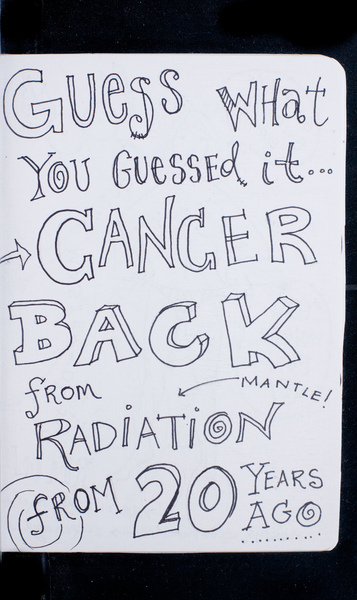 GUess WHat
YOU GUESSED it...
CANCER
BACK
from MANTLE!
RADIATION
fROM 20 YEARS
AGO